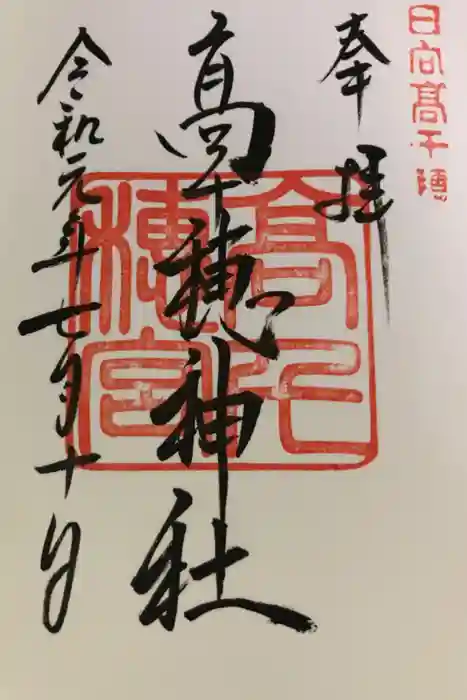 日向高千穂
奉拝
高千穂神社
高千穂宮
令和元年七月十日